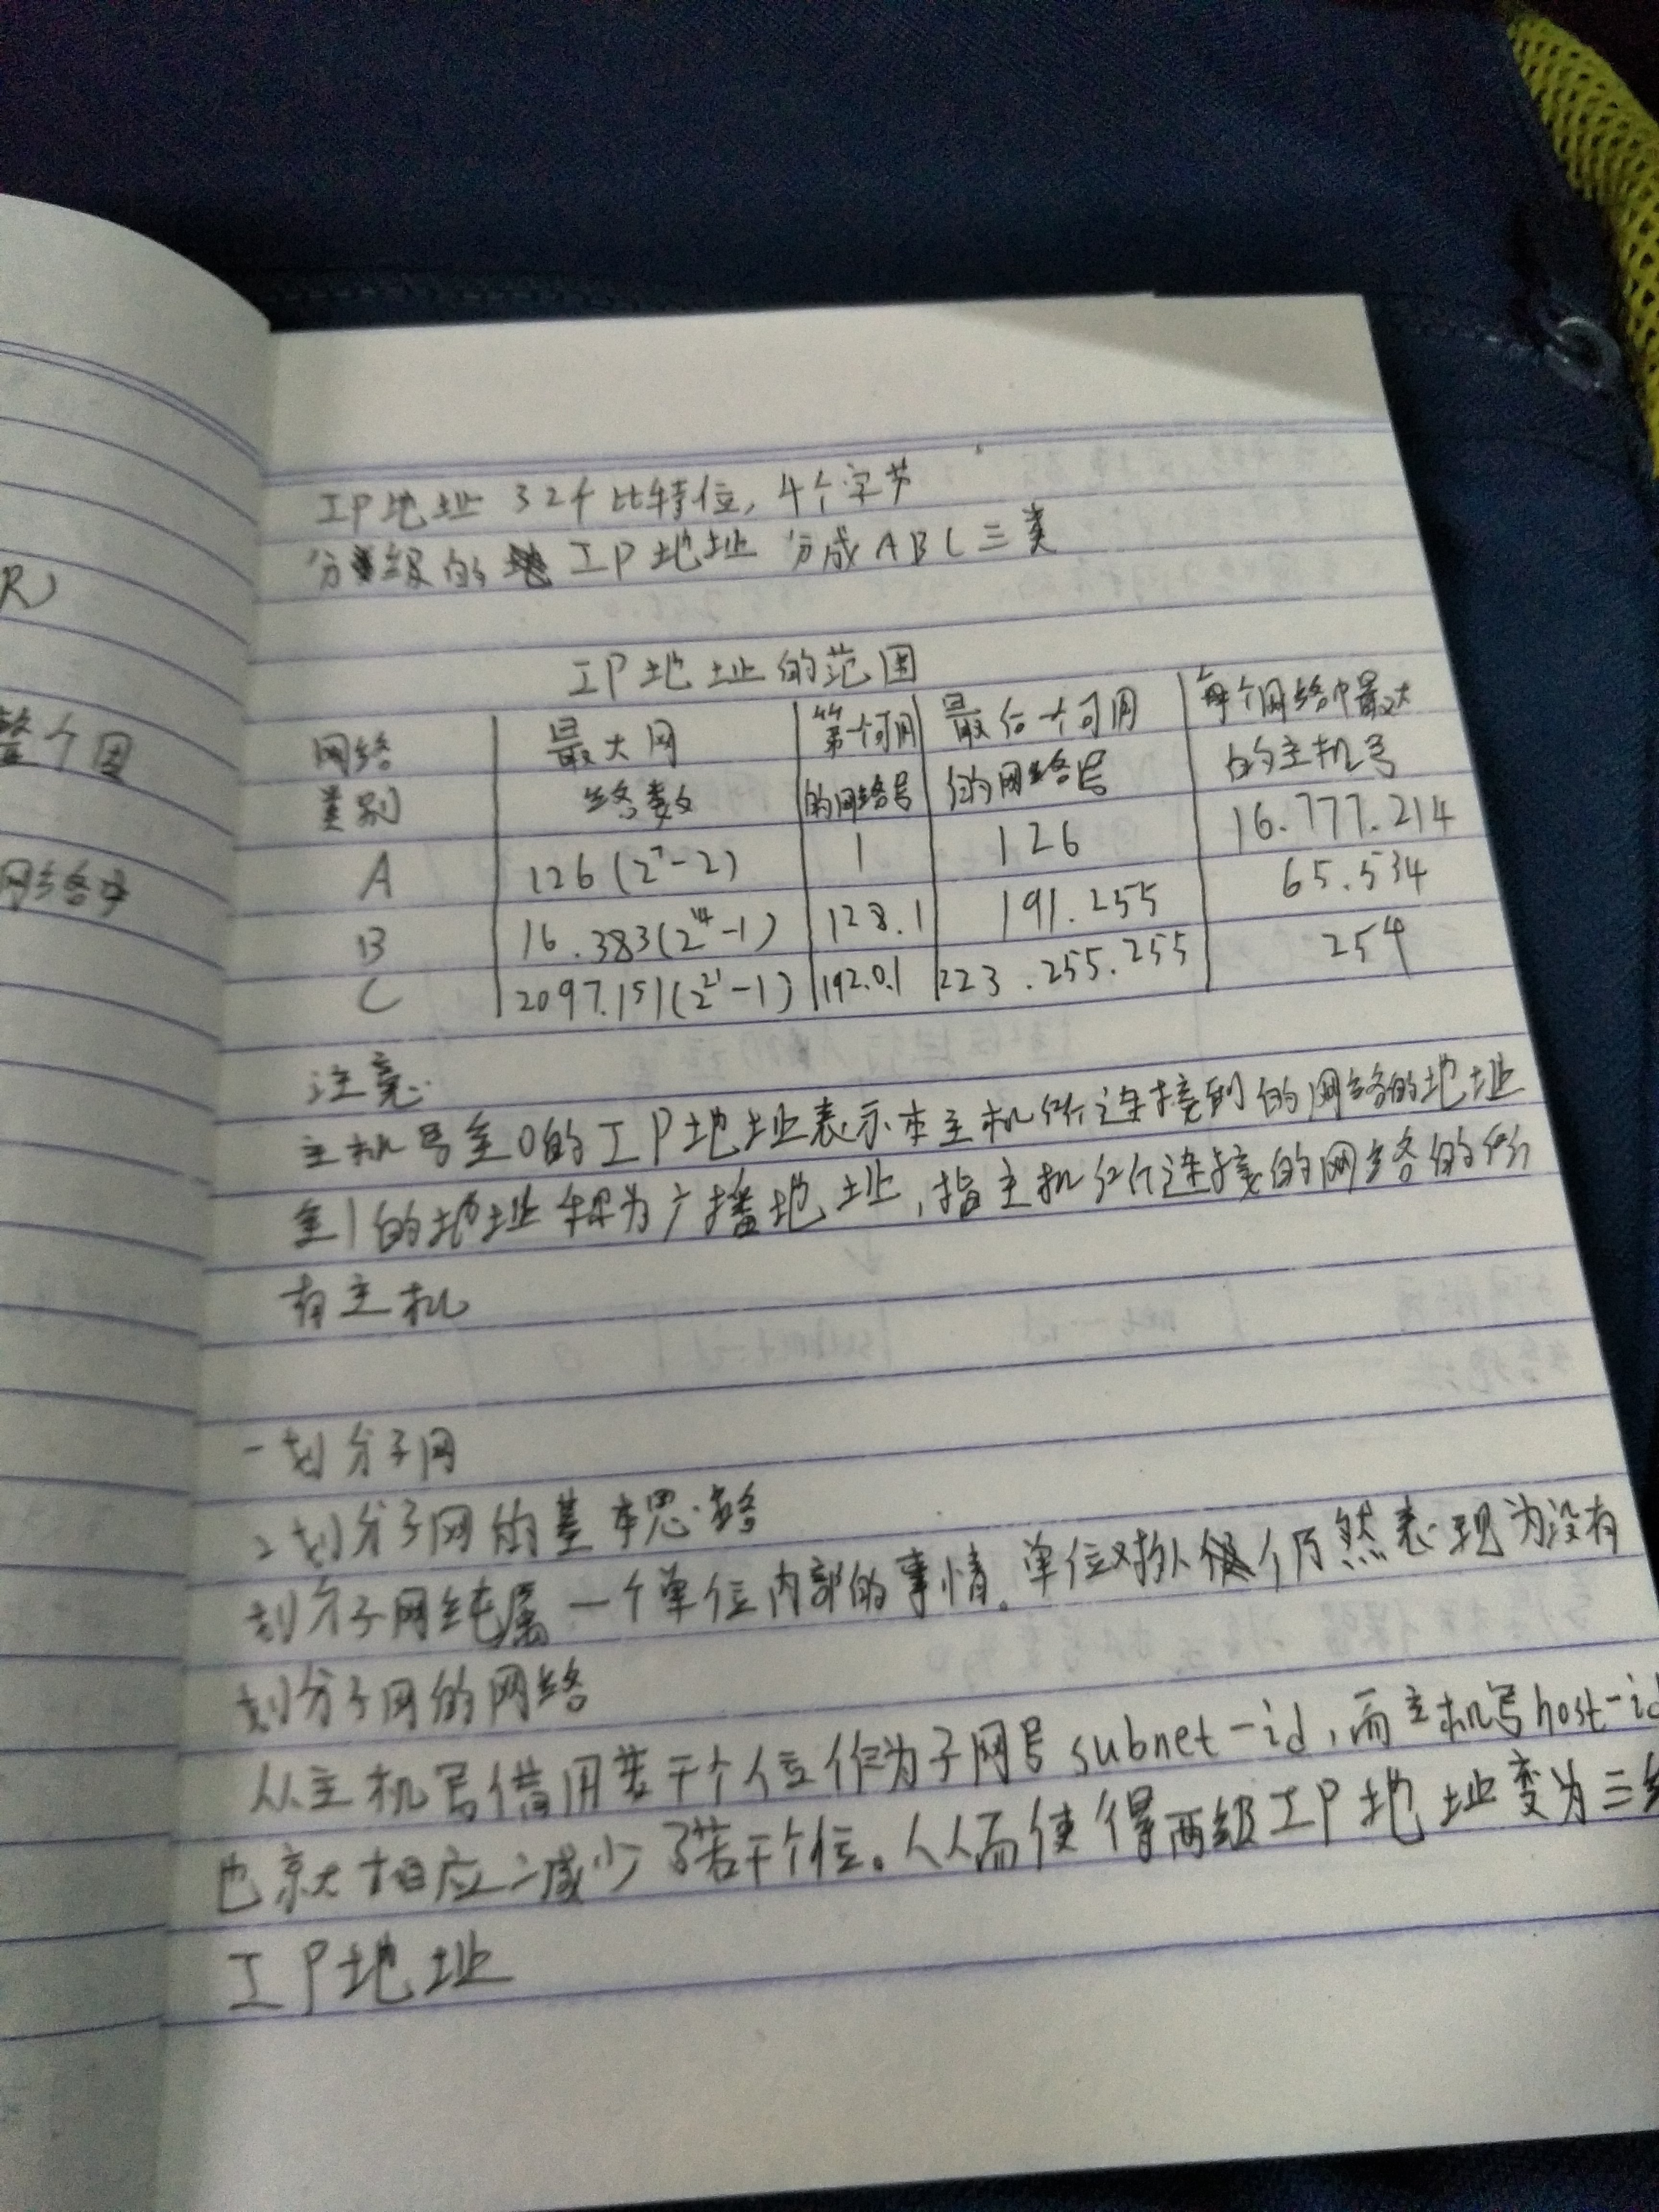 R)
整个因
网络中
IP地址 32个比特位, 4个字节
分级的 IP地址 分成ABC三类
IP地址的范围
网络 最大网 第一个可用 最后一个可用 每个网络中最大
类别 络数 的网络号 的网络号 的主机号
A 126(2⁷-2) 1 126 16.777.214
B 16.383(2¹⁴-1) 128.1 191.255 65.534
C 2097.151(2²¹-1) 192.0.1 223.255.255 254
注意:
主机号全0的IP地址表示本主机所连接到的网络的地址
全1的地址称为广播地址,指主机所连接的网络的所
有主机
一划分子网
2划分子网的基本思路
划分子网纯属一个单位内部的事情。单位对外仍然表现为没有
划分子网的网络
从主机号借用若干个位作为子网号subnet-id,而主机号host-id
也就相应减少了若干个位。从而使得两级IP地址变为三级
IP地址